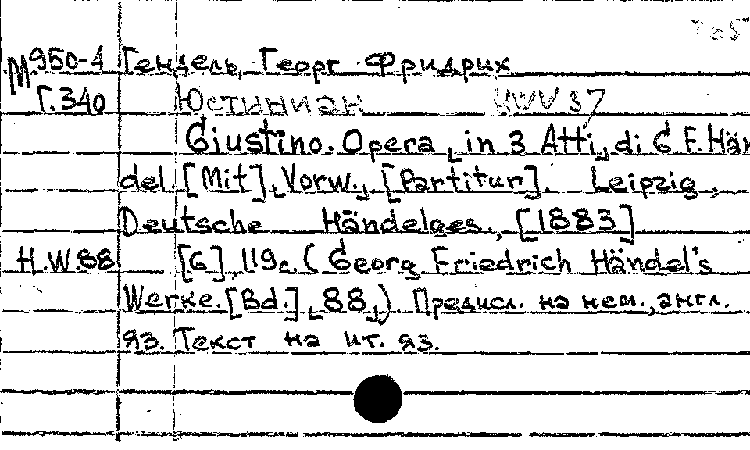 М950-4 Гендель, Георг Фридрих
Г.340 Юстиниан HWV 37
Giustino. Opera [in 3 Atti] di G F. Hän
del [Mit] [Vorw.] [Partitur]. Leipzig,
Deutsche Händelges., [1883]
H.W.88 [6], 119c. (Georg Friedrich Händel's
Werke. [Bd.] [88]) Предисл. на нем., англ.
яз. Текст на ит. яз.